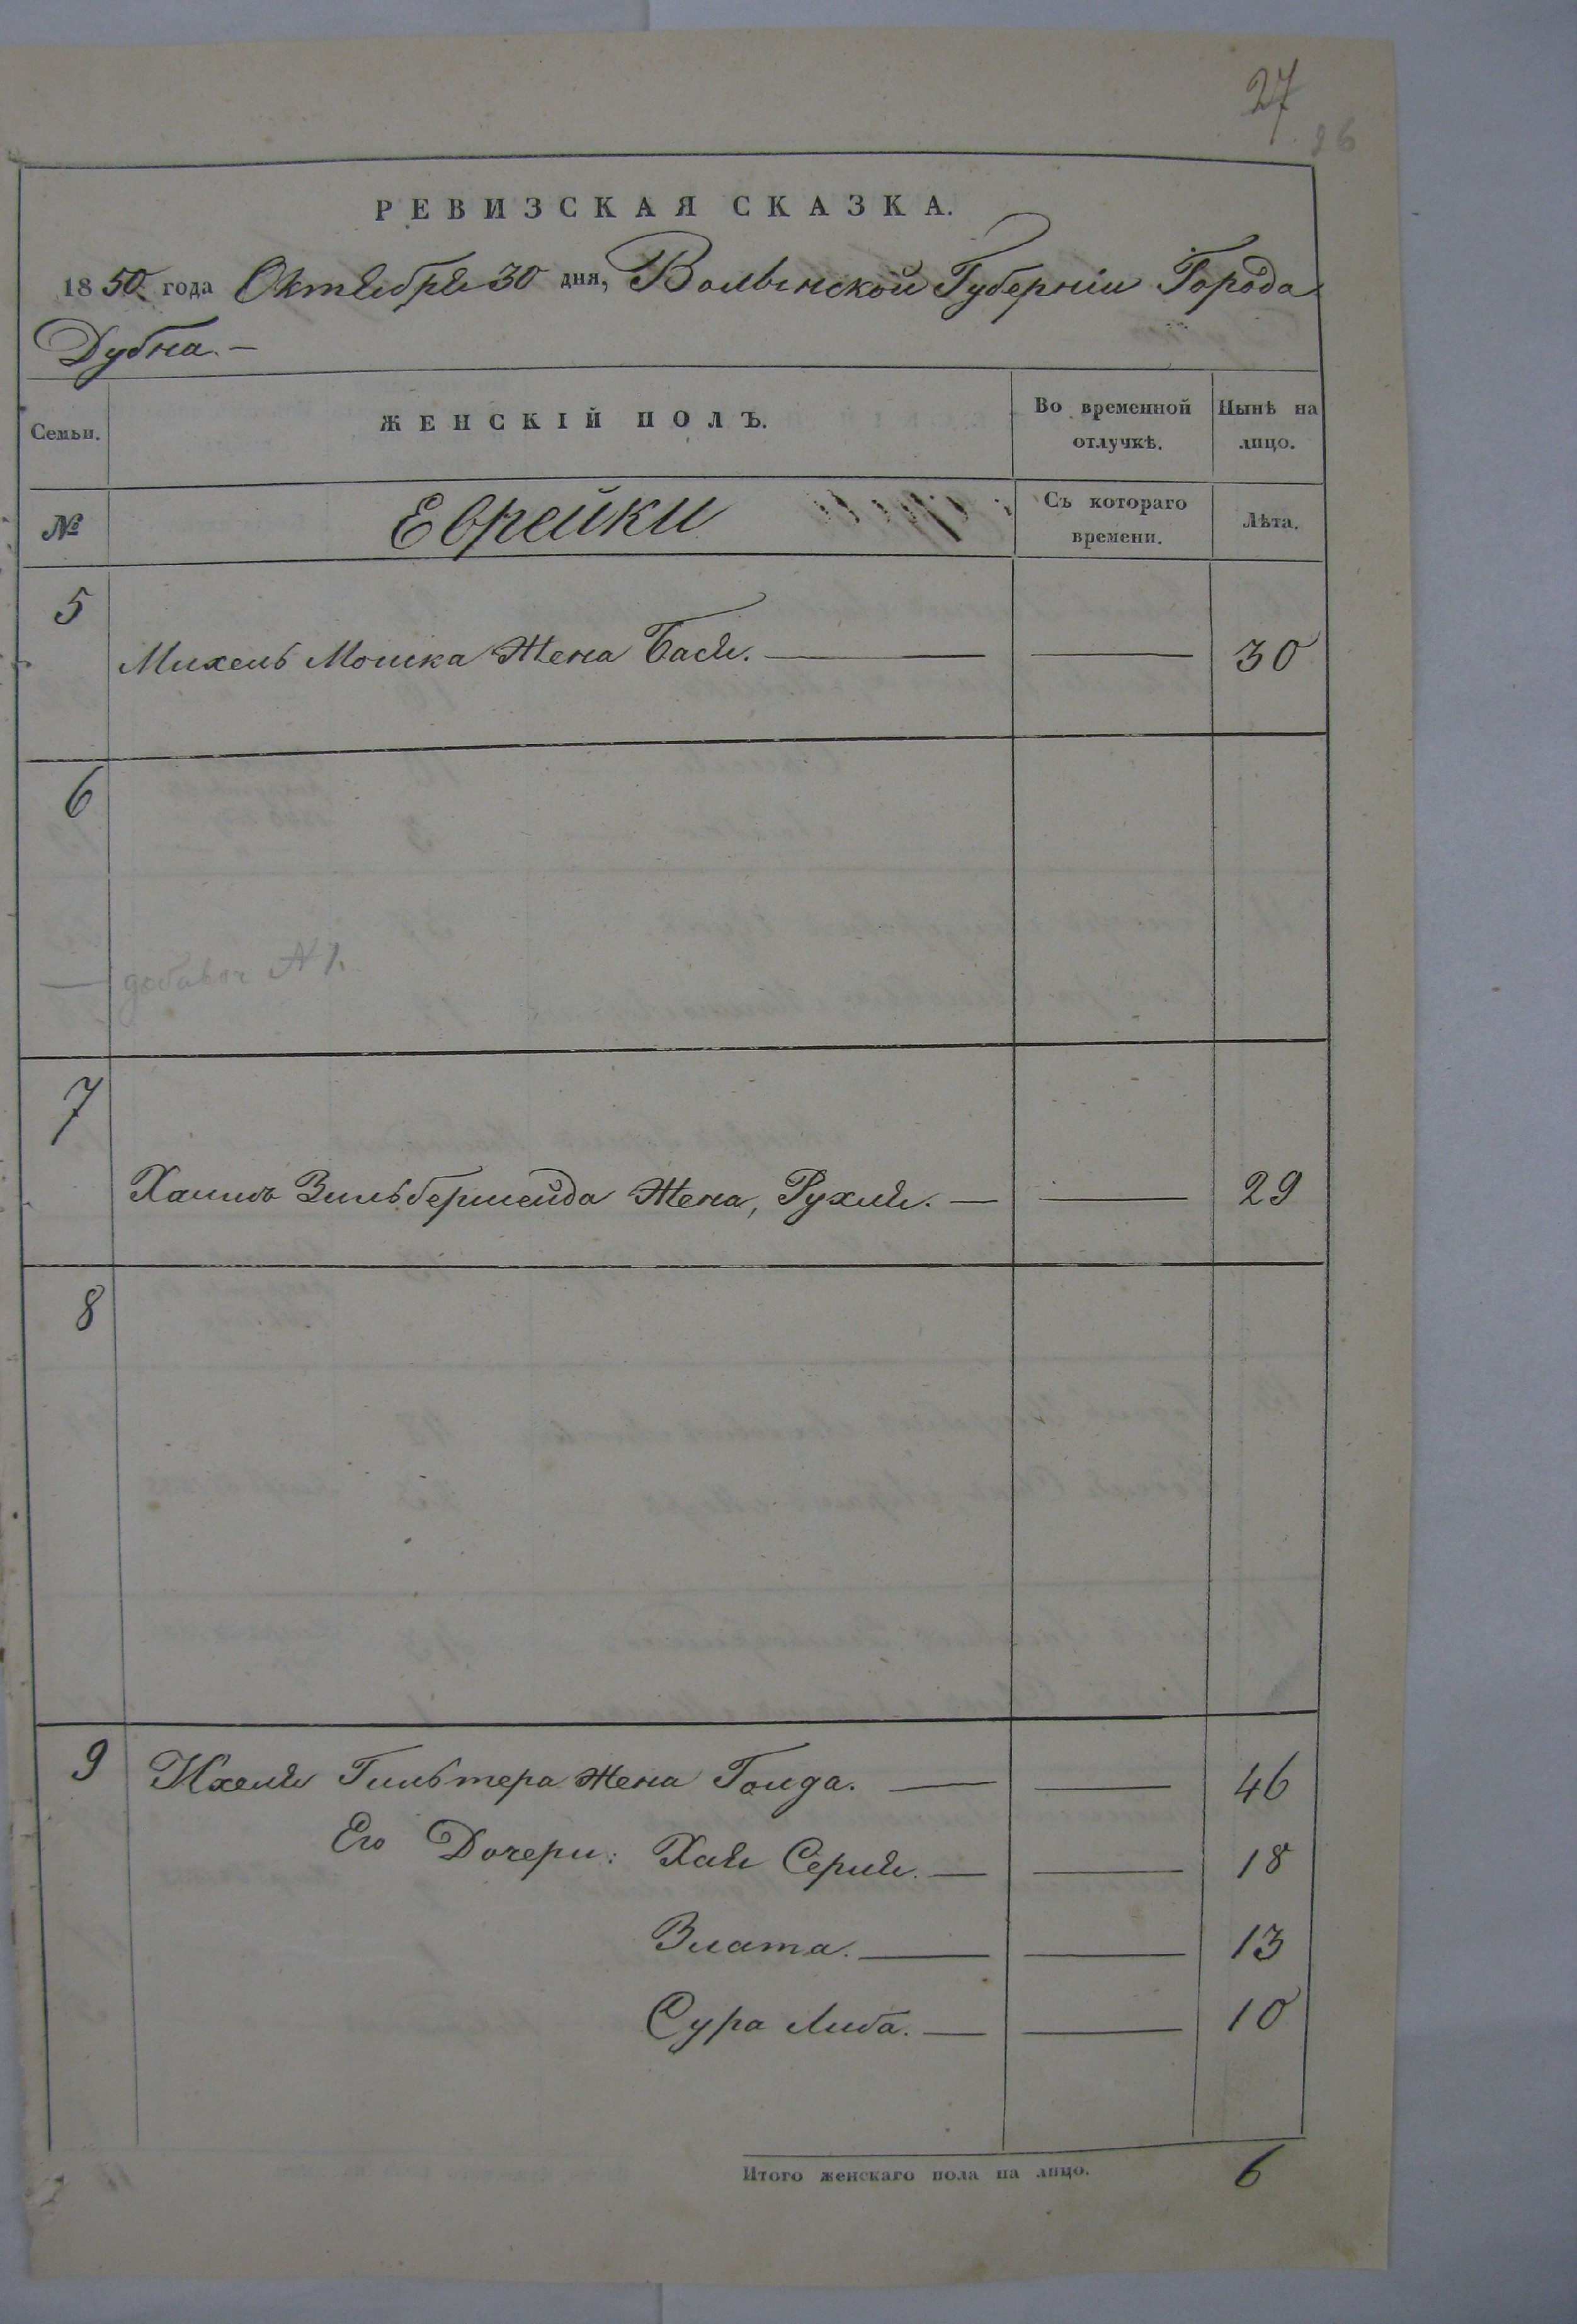 27
26
РЕВИЗСКАЯ СКАЗКА.
1850 года Октября 30 дня, Волынской Губерніи Города
Дубна.—
Семьи.
ЖЕНСКІЙ ПОЛЪ.
Во временной отлучкѣ.
Нынѣ на лицо.
№
Еврейки
Съ котораго времени.
Лѣта.
5
Михель Мошка Жена Бася. — — 30
6
— добавоч № 1.
7
Хаимъ Зильбершейда Жена, Рухля. — — 29
8
9 Ихеля Гильтера Жена Гольда. — — 46
Его Дочери: Хая Серля. — — 18
Злата. — — 13
Сура Либа. — — 10
Итого женскаго пола на лицо. 6